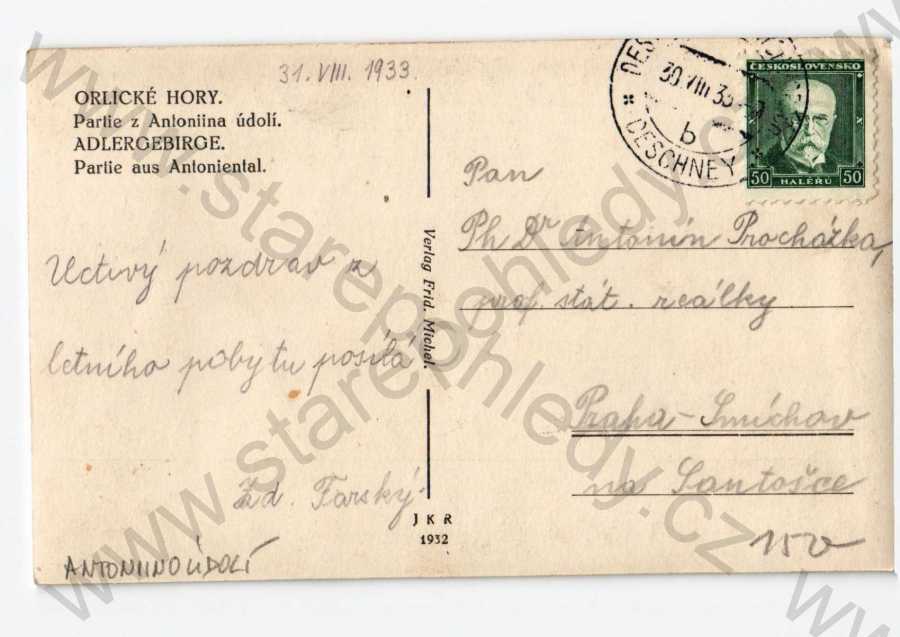 31. VIII. 1933.
ORLICKÉ HORY.
Partie z Antoniina údolí.
ADLERGEBIRGE.
Partie aus Antoniental.
Uctivý pozdrav z
letního pobytu posílá
Zd. Farský
ANTONIINO ÚDOLÍ
Verlag Frid. Michel.
J K R
1932
30. VIII 33
b
DESCHNEY
ČESKOSLOVENSKO
50 HALÉŘŮ 50
Pan
Ph Dr Antonín Procházka,
prof. stát. reálky
Praha-Smíchov
na Santošce
150
www.starepohledy.cz
www.starepohledy.cz